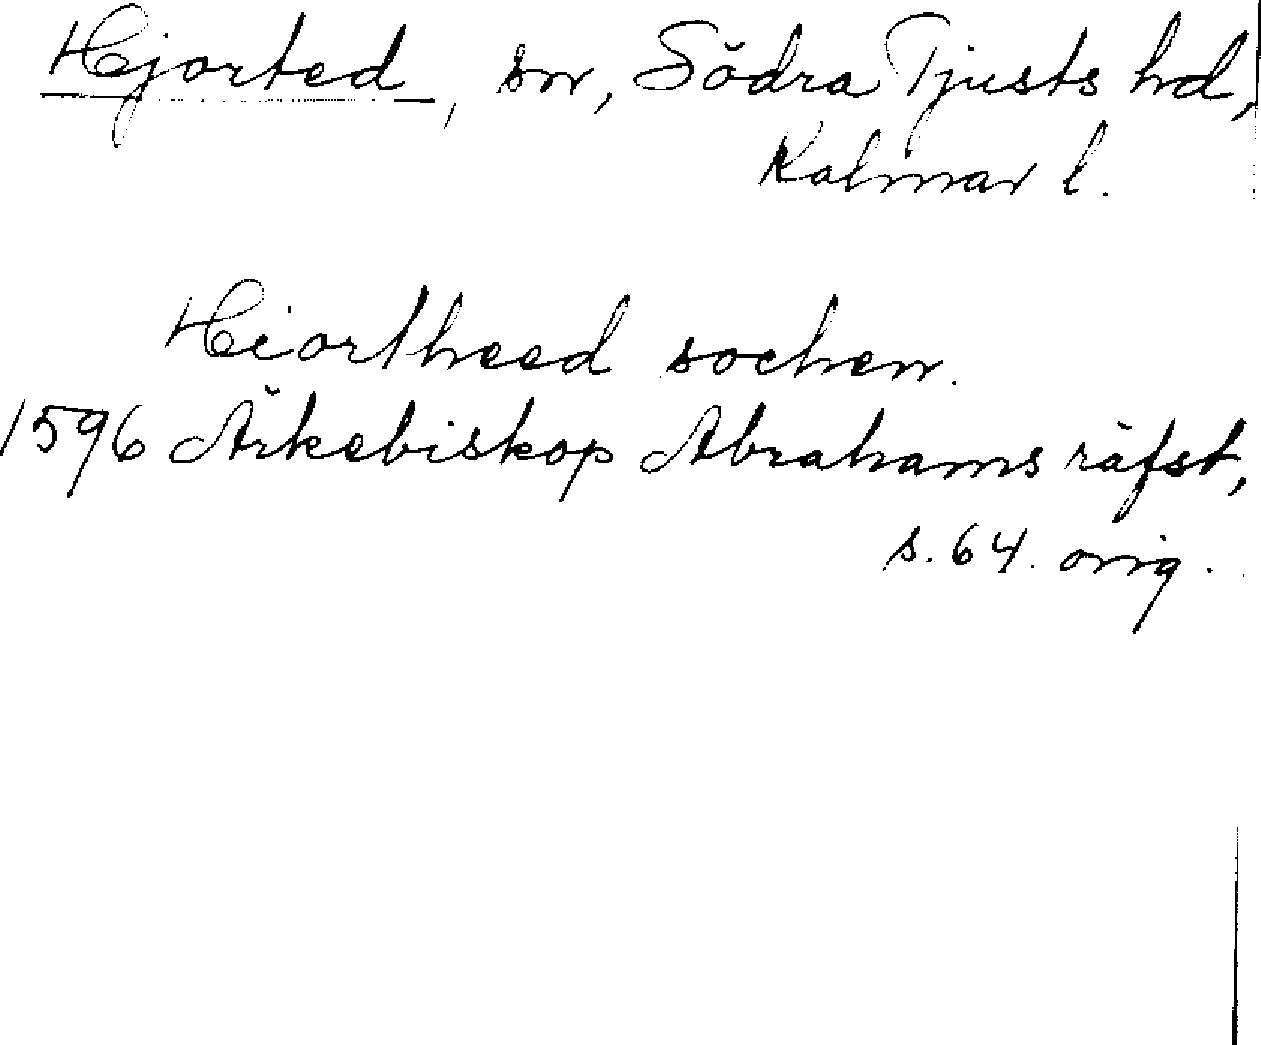 Hjorted, sn, Södra Tjusts hd,
Kalmar l.
Hiortheed sochen.
1596 Ärkebiskop Abrahams räfst,
s. 64. orig.